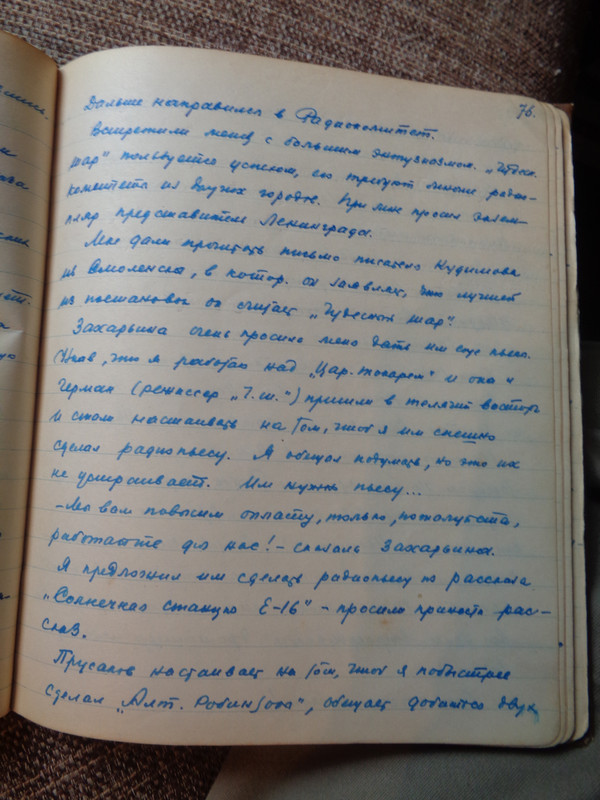 76.
Дальше направился в Радиокомитет.
Встретили меня с большим энтузиазмом. „Чудесн.
шар" пользуется успехом, его требуют многие радио-
комитеты из других городов. При мне просил экзем-
пляр представитель Ленинграда.
Мне дали прочитать письмо писателя Кудимова
из Смоленска, в котор. он заявляет, что лучшей
из постановок он считает „Чудесный шар".
Захарьина очень просила меня дать им еще пьесу.
Узнав, что я работаю над „Цар. токарем" и она и
Герман (режиссер „Ч. ш.") пришли в телячий восторг
и стали настаивать на том, чтоб я им спешно
сделал радиопьесу. Я обещал подумать, но это их
не устраивает. Им нужна пьеса...
– Мы вам повысим оплату, только, пожалуйста,
работайте для нас! – сказала Захарьина.
Я предложил им сделать радиопьесу по рассказу
„Солнечная станция Е-16" – просили принести рас-
сказ.
Прусаков настаивает на том, чтоб я побыстрее
сделал „Алт. Робинзона", обещает добиться двух